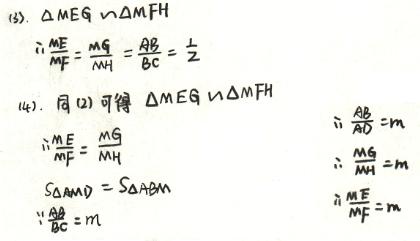 (3). △MEG ∽ △MFH
∴ ME/MF = MG/MH = AB/BC = 1/2
(4). 同(2)可得 △MEG ∽ △MFH
∴ ME/MF = MG/MH
S△AMD = S△ABM
∵ AB/BC = m
∴ AB/AD = m
∴ MG/MH = m
∴ ME/MF = m